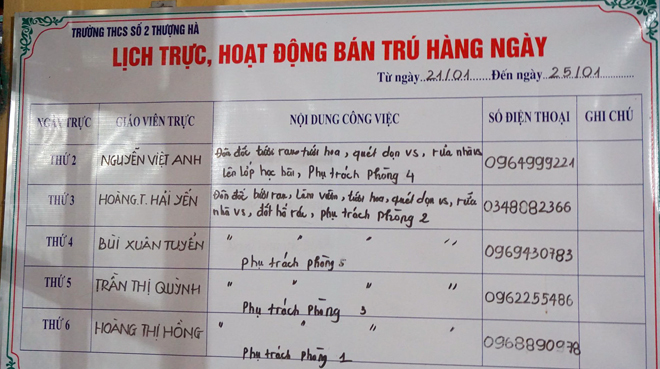 TRƯỜNG THCS SỐ 2 THƯỢNG HÀ
LỊCH TRỰC, HOẠT ĐỘNG BÁN TRÚ HÀNG NGÀY
Từ ngày 21/01 Đến ngày 25/01
NGÀY TRỰC GIÁO VIÊN TRỰC NỘI DUNG CÔNG VIỆC SỐ ĐIỆN THOẠI GHI CHÚ
THỨ 2 NGUYỄN VIỆT ANH Đôn đốc tưới rau tưới hoa, quét dọn vs, rửa nhà vs 0964999221
lên lớp học bài, Phụ trách Phòng 4
THỨ 3 HOÀNG.T. HẢI YẾN Đôn đốc tưới rau, làm vườn, tưới hoa, quét dọn vs, rửa 0348082366
nhà vs, đốt hố rác, phụ trách Phòng 2
THỨ 4 BÙI XUÂN TUYỂN " " " " 0969430783
Phụ trách Phòng 5
THỨ 5 TRẦN THỊ QUỲNH " " " " 0962255486
Phụ trách Phòng 3
THỨ 6 HOÀNG THỊ HỒNG " " " " 0968890978
Phụ trách Phòng 1